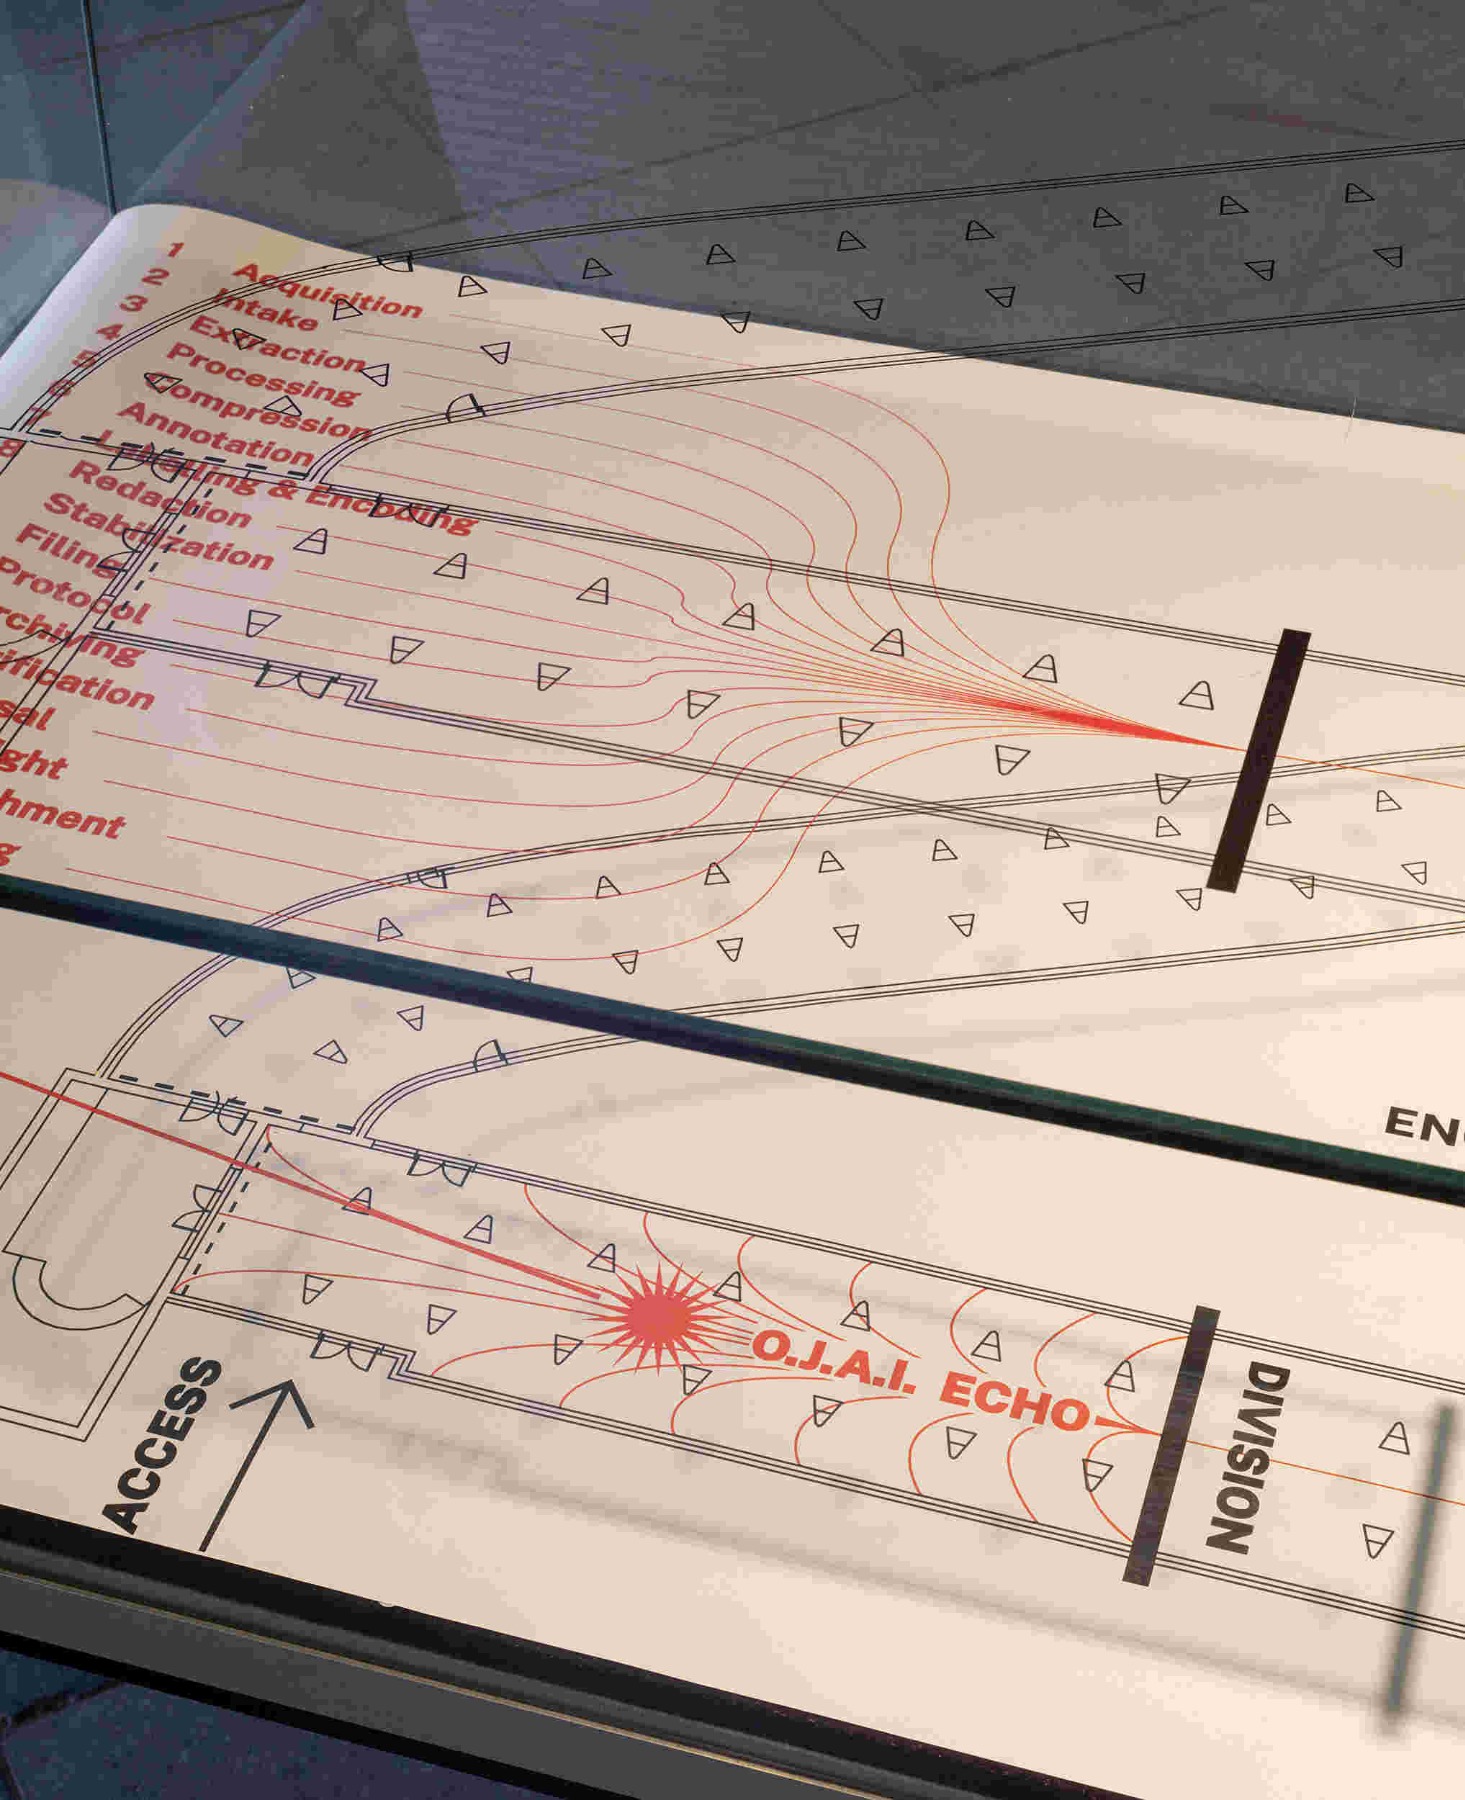 1 Acquisition
2 Intake
3 Extraction
4 Processing
5 Compression
6 Annotation
7 Labelling & Encoding
8 Redaction
Stabilization
Filing
Protocol
rchiving
ification
sal
ght
hment
g
EN
O.J.A.I. ECHO
DIVISION
ACCESS